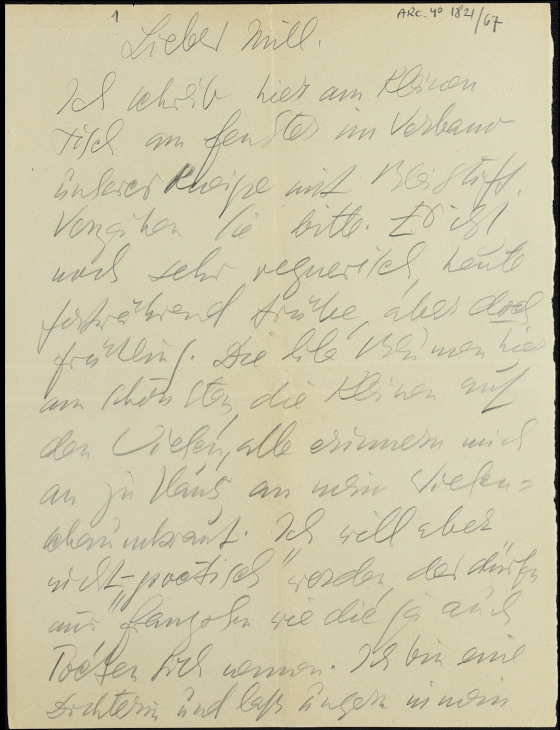 1
ARC. 4° 1821/67
Lieber Mill.
Ich schreib hier am kleinen
Tisch am Fenster im Verband
unserer Kneipe mit Bleistift.
Verzeihen Sie bitte. Es ist
noch sehr regnerisch, heute
fortwährend trübe, aber doch
Frühling. Die lila Blumen hier
am schönsten, die kleinen auf
den Wiesen, alle erinnern mich
an zu Haus, an mein Wiesen=
schaumkraut. Ich will aber
nicht „poetisch" werden, das dürfen
nur Franzosen wie die ja auch
Poeten sich nennen. Ich bin eine
Dichterin und lass ungern in mein